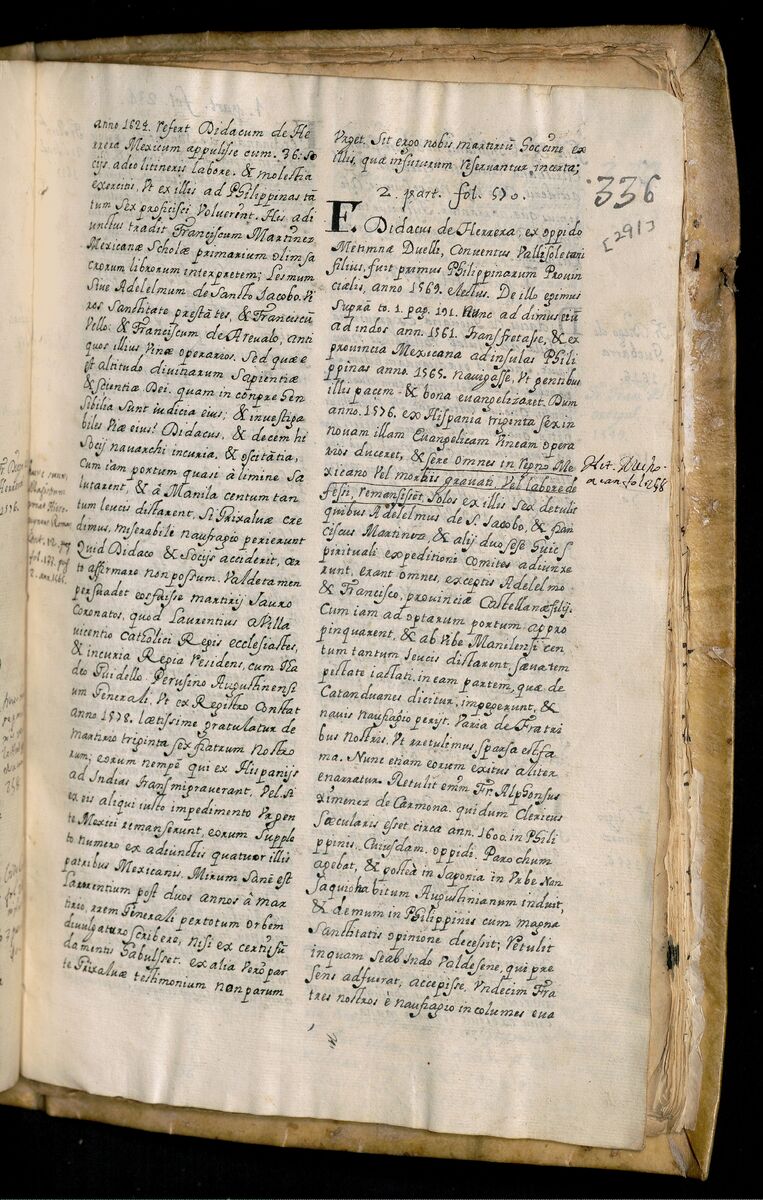 anno 1624. refert Didacum de He
rrera Mexicum appulisse cum. 36. So
cijs. adeo litineris labore. & molestia
exercitos, Vt ex illis ad Philippinas tã
tum sex proficisci voluerint. His. adi
unctus tradit Franciscum Martinez
Mexicanæ Scholæ primarium olim sa
crorum librorum interpretem; Lesmum
sive Adelelmum de Sancto Jacobo. Vi
ros Sanctitate prestãtes, & Franciscũ
Vello: & Franciscum de Arevalo, anti
quos illius Vinæ operarios. Sed quæ e
st altitudo divitiarum Sapientiæ
& scientiæ Dei. quam inconprehen
sibilia sunt iudicia eius; & investiga
biles viæ eius! Didacus, & decem hi
socij navarchi incuria, & oscitãtia,
Cum iam portum quasi à limine sa
lutarent, & à Manila centum tan
tum leucis distarent, si Grixalvæ cre
dimus, miserabile naufragio perierunt
Quid Didaco & Socijs acciderit, cer
to affirmare non possum. Valde tamen
persuadet eos fuisse martirij lauro
Coronatos, quod Laurentius a Villa
vicentio catholici Regis ecclesiastes,
& incuria Regia residens, cum Tha
deo Guidello. Perusino Augustinensi
um Generali, Vt ex Registro Constat
anno 1578. lætissime gratulatur de
martirio triginta sex fratrum nostro
rum; eorum nempè qui ex Hispanijs
ad Indias transmigraverant. Vel. si
ex eis aliqui iusto impedimento Urgen
te Mexici remanserunt, eorum Supple
to numero ex adiunctis quatuor illis
patribus Mexicanis. Mirum sanè est
Laurentium post duos annos à mar
tirio, rrem Generali per totum orbem
divulgaturo scribere, nisi ex certis fũ
damentis habuisset. ex alia Verò par
te Grixalvæ testimonium non parum
Urget. Sit ergo nobis martiriũ hoc, sine ex
illis, quæ in futurum reservantur incerta;
2. part. fol. 570.
F. Didacus de Herrera, ex oppido
Metimnæ Duelli, Conventus Vallisoletani
filius, fuit primus Philippinarum Provin
cialis, anno 1569. electus. De illo egimus
Suprà to. 1. pag. 191. Nunc addimus eũ
ad indos ann. 1561. Transfretasse, & ex
provincia Mexicana ad insulas Phili
ppinas anno. 1565. navigasse, Vt gentibus
illis pacem & bona evangelizaret. Dum
anno. 1576. ex Hispania triginta sex in
novam illam Evangelicam Vineam opera
rios duceret, & fere omnes in regno Me
xicano Vel morbis gravati Vel labore de
fessi, remansissẽt. Solos ex illis sex detulit
quibus Adelelmus de S. Iacobo, & Fran
ciscus Martinez, & alij duo sese huic s
pirituali expeditioni Comites adiunxe
runt, erant omnes, exceptis Adelelmo
& Francisco, provinciæ Castellanæ filij.
Cum iam ad optatum portum appro
pinquarent, & ab Vrbe Manilensi cen
tum tantum leucis distarent, sæva tem
pestate iactati, in eam partem, quæ de
Catanduanes dicitur, impegerunt, &
navis naufragio perijt. Varia de Fratri
bus nostris, Vt rretulimus, sparsa est fa
ma. Nunc etiam eorum exitus aliter
enarratur. Retulit enim Fr. Alphonsus
Ximenez de Carmona. qui dum Clericus
sæcularis esset circa ann. 1600. in Phili
ppinis. Cuiusdam. oppidi. Parochum
agebat, & posteà in Iaponia in Vrbe Nan
gaqui habitum Augustinianum induit,
& demum in Philippinis cum magna
Sanctitatis opinione decessit; Retulit
inquam se ab Indo Valde sene, qui pre
sens adfuerat, accepisse, Vndecim Fra
tres nostros è naufragio incolumes eva
336
[291]